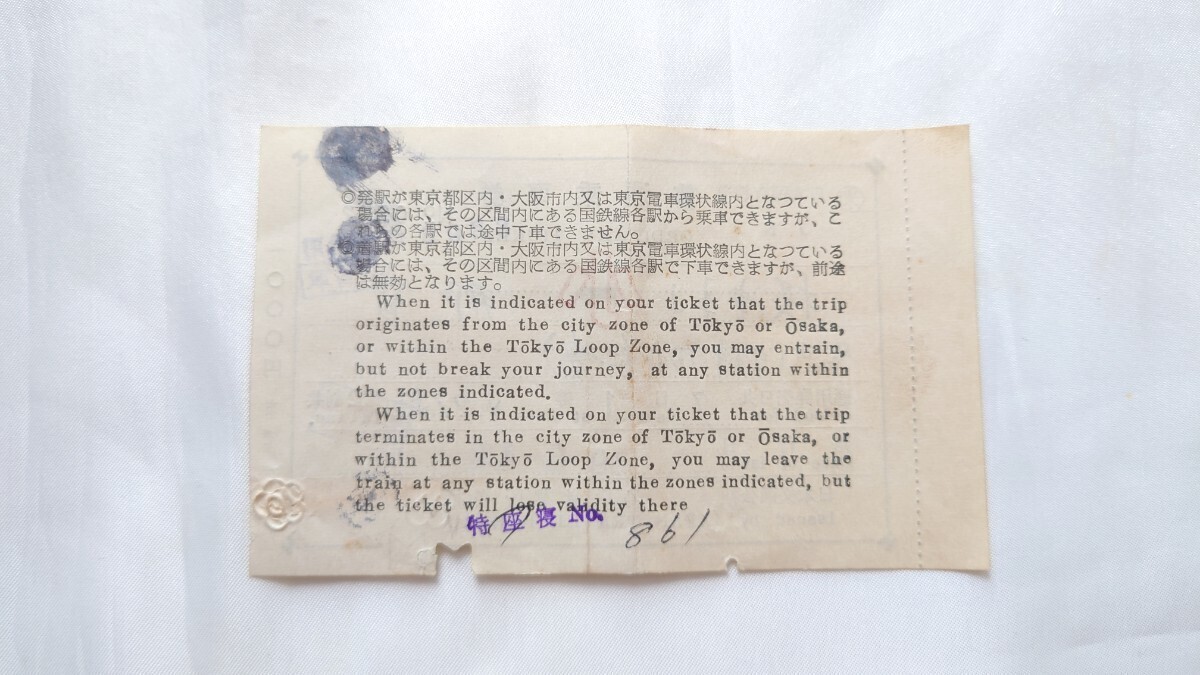 ◎発駅が東京都区内・大阪市内又は東京電車環状線内となつている
場合には、その区間内にある国鉄線各駅から乗車できますが、こ
れらの各駅では途中下車できません。
◎着駅が東京都区内・大阪市内又は東京電車環状線内となつている
場合には、その区間内にある国鉄線各駅で下車できますが、前途
は無効となります。
When it is indicated on your ticket that the trip
originates from the city zone of Tōkyō or Ōsaka,
or within the Tōkyō Loop Zone, you may entrain,
but not break your journey, at any station within
the zones indicated.
When it is indicated on your ticket that the trip
terminates in the city zone of Tōkyō or Ōsaka, or
within the Tōkyō Loop Zone, you may leave the
train at any station within the zones indicated, but
the ticket will lose validity there
特座寝 No. 861